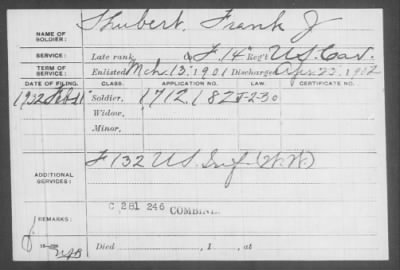 NAME OF SOLDIER: Shubert, Frank J
SERVICE: Late rank, Co F. 14" Reg't U.S. Cav.
TERM OF SERVICE: Enlisted Mch. 13, 1901 Discharged Apr. 23, 1902
DATE OF FILING. CLASS. APPLICATION NO. LAW. CERTIFICATE NO.
1932 Feb 11 Soldier, 1,712,182 J-2-30
Widow,
Minor,
ADDITIONAL SERVICES: F 132 U.S. Inf (W.W.)
C 281 246 COMBINE
REMARKS:
Died , 1 , at